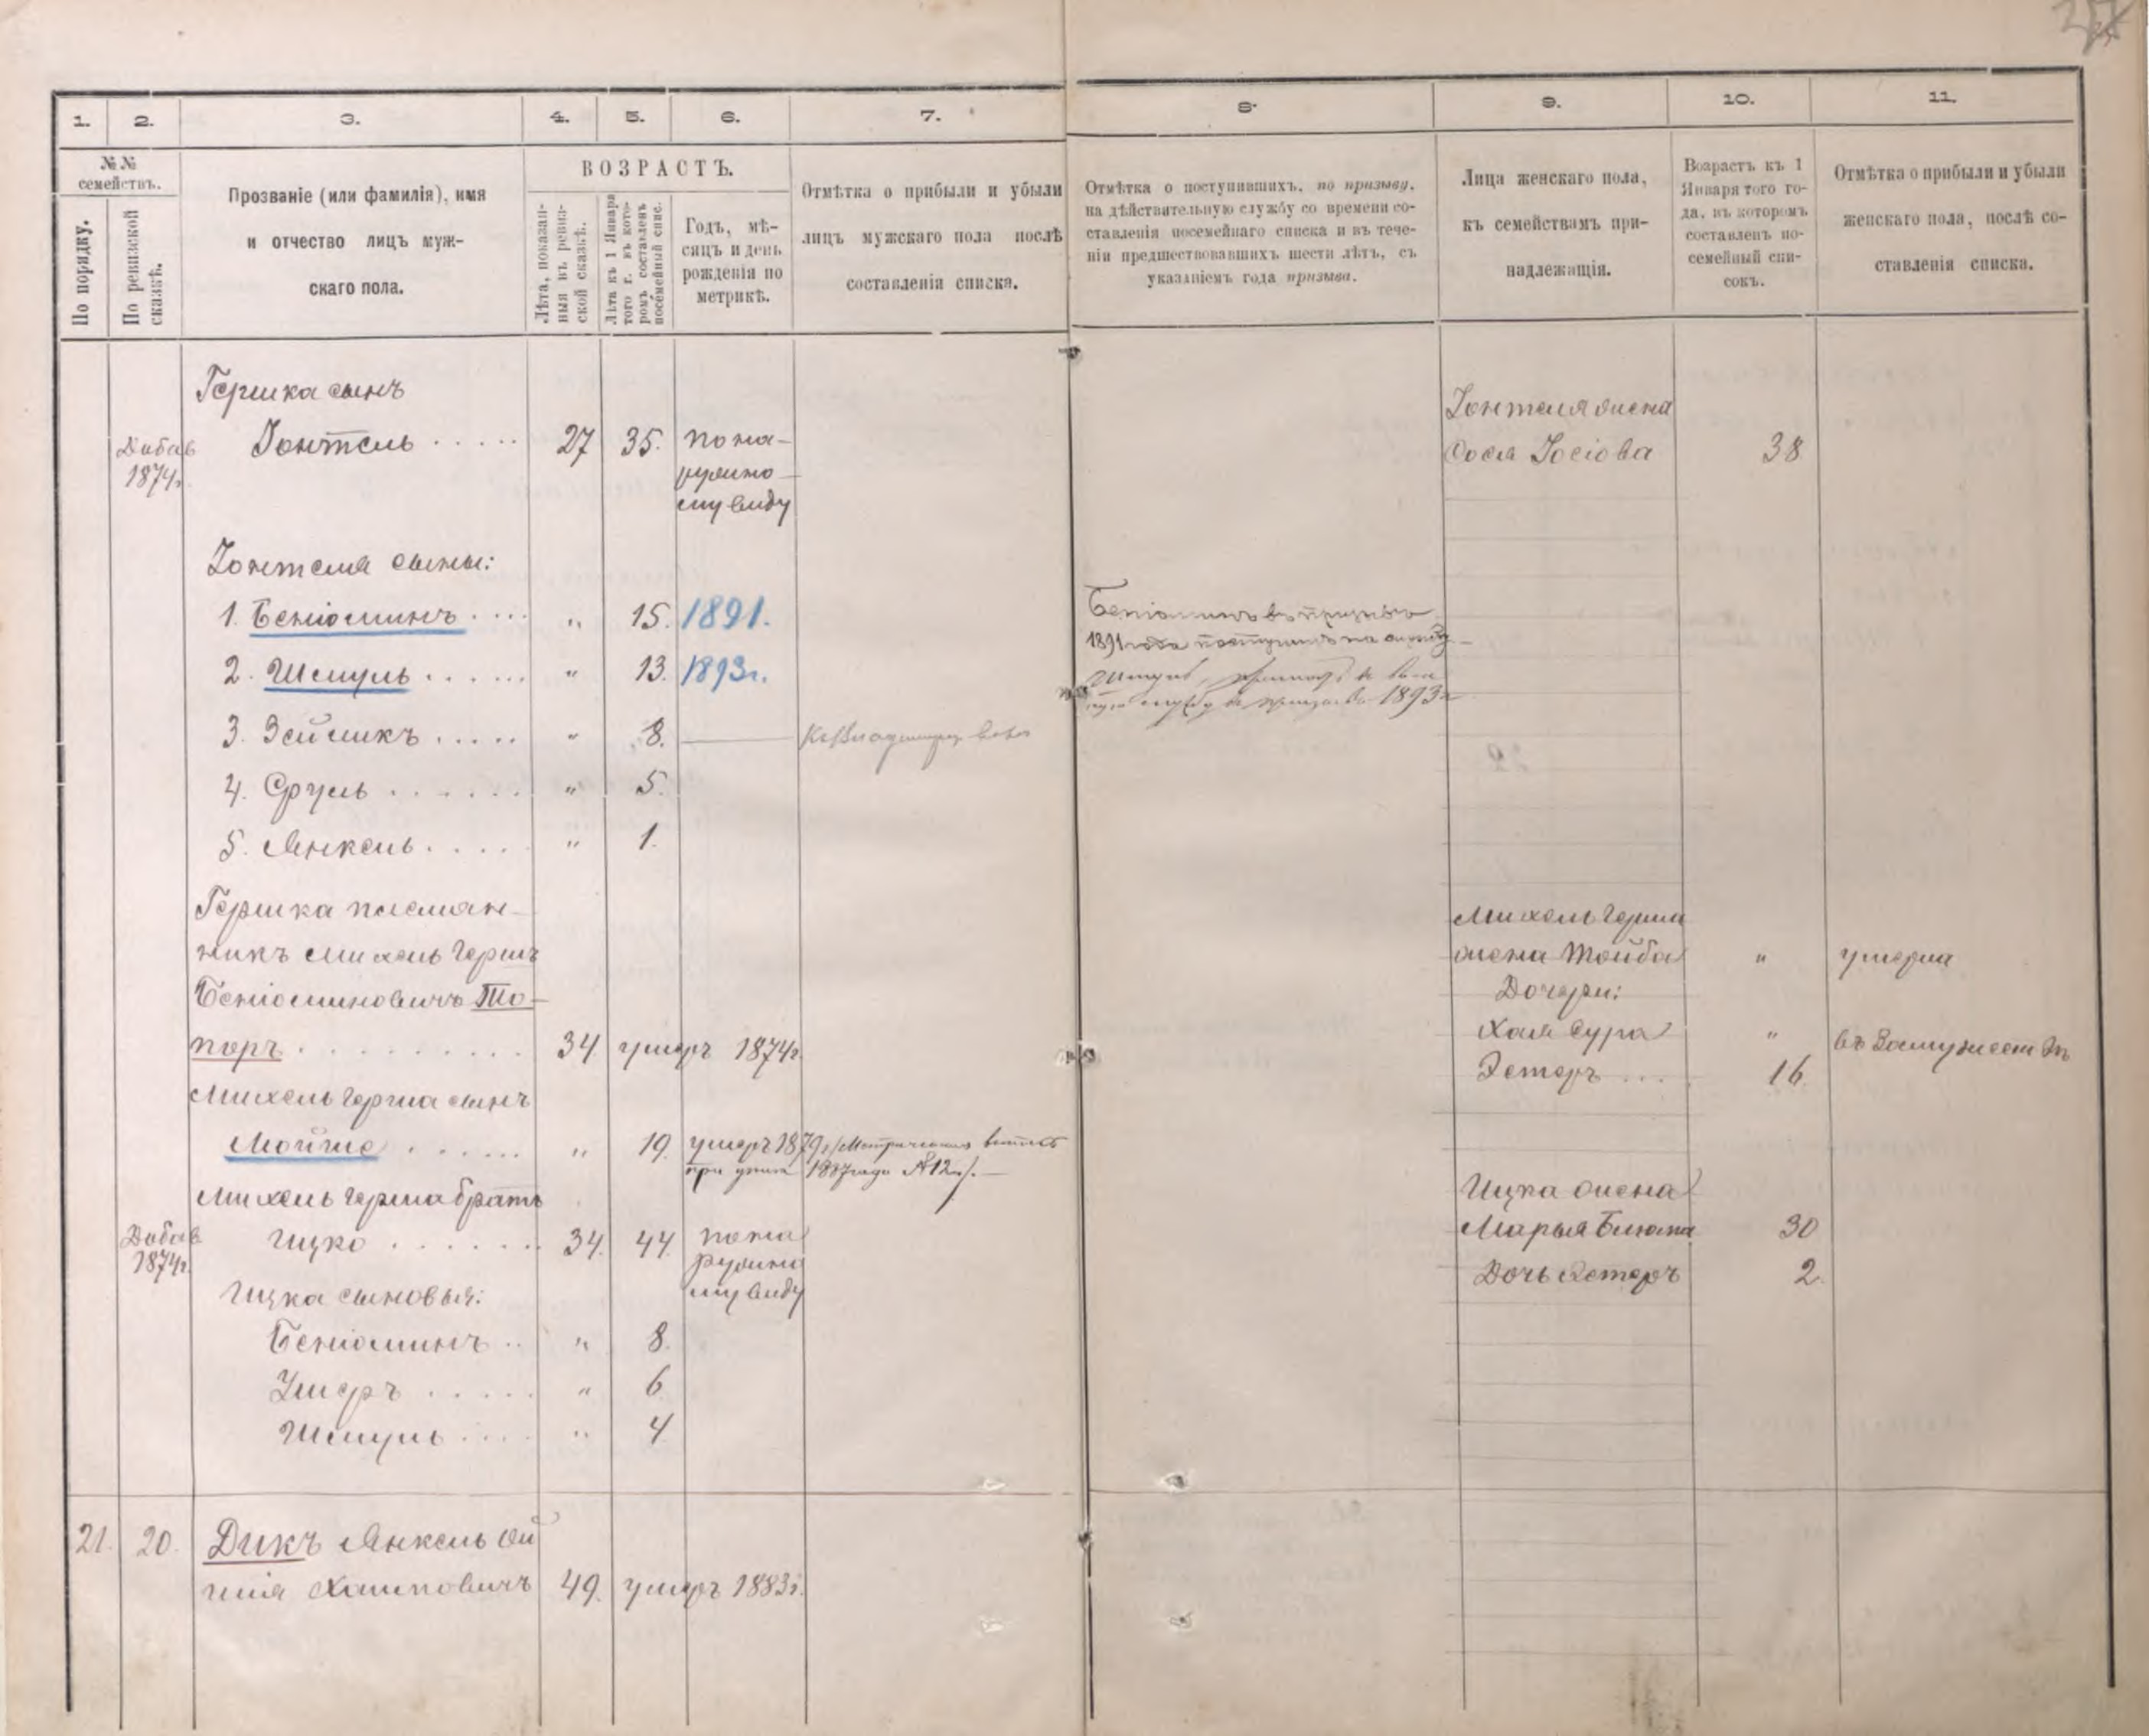 27
1.
2.
3.
4.
5.
6.
7.
8.
9.
10.
11.
№№
семействъ.
По порядку.
По ревизской
сказкѣ.
Прозваніе (или фамилія), имя
и отчество лицъ муж-
скаго пола.
ВОЗРАСТЪ.
Лѣта, показан-
ныя въ ревиз-
ской сказкѣ.
Лѣта къ 1 Января
того г. въ кото-
ромъ составленъ
посемейный спис.
Годъ, мѣ-
сяцъ и день
рожденія по
метрикѣ.
Отмѣтка о прибыли и убыли
лицъ мужскаго пола послѣ
составленія списка.
Отмѣтка о поступившихъ, по призыву,
на дѣйствительную службу со времени со-
ставленія посемейнаго списка и въ тече-
ніи предшествовавшихъ шести лѣтъ, съ
указаніемъ года призыва.
Лица женскаго пола,
къ семействамъ при-
надлежащія.
Возрастъ къ 1
Января того го-
да, въ которомъ
составленъ по-
семейный спи-
сокъ.
Отмѣтка о прибыли и убыли
женскаго пола, послѣ со-
ставленія списка.
Гершка сынъ
Добав Іонтель 27 35. по на-
1874г. ружно-
му виду
Іонтеля жена
Сося Іосіова 38
Іонтеля сыны:
1. Беніоминъ " 15. 1891.
Беніоминъ въ призывъ
1891 года поступилъ на службу
2. Шмуль " 13. 1893г.
Шмуль, принятъ въ
службу въ призывъ 1893г
3. Зейликъ " 8.
4. Сруль " 5.
5. Янкель " 1.
Гершка племян-
никъ Михель Гершъ
Беніоминовичъ То-
поръ 34 умеръ 1874г.
Михель Герша
жена Тойба " умерла
Дочери:
Хая Сура " въ замужествѣ
Эстеръ 16.
Михель Герша сынъ
Мойше " 19. умеръ 1879г. /Метрическая выпись
при 1887 года №12./.
Михель Герша братъ
Добав Ицко 34. 44. по на
1874г. ружно
му виду
Ицка жена
Марья 30
Дочь Естеръ 2.
Ицка сыновья:
Беніоминъ " 8.
Ушеръ " 6
Шмуль " 4
21. 20. Дикъ Янкель Ои
шія Хаимовичъ 49. умеръ 1883г.